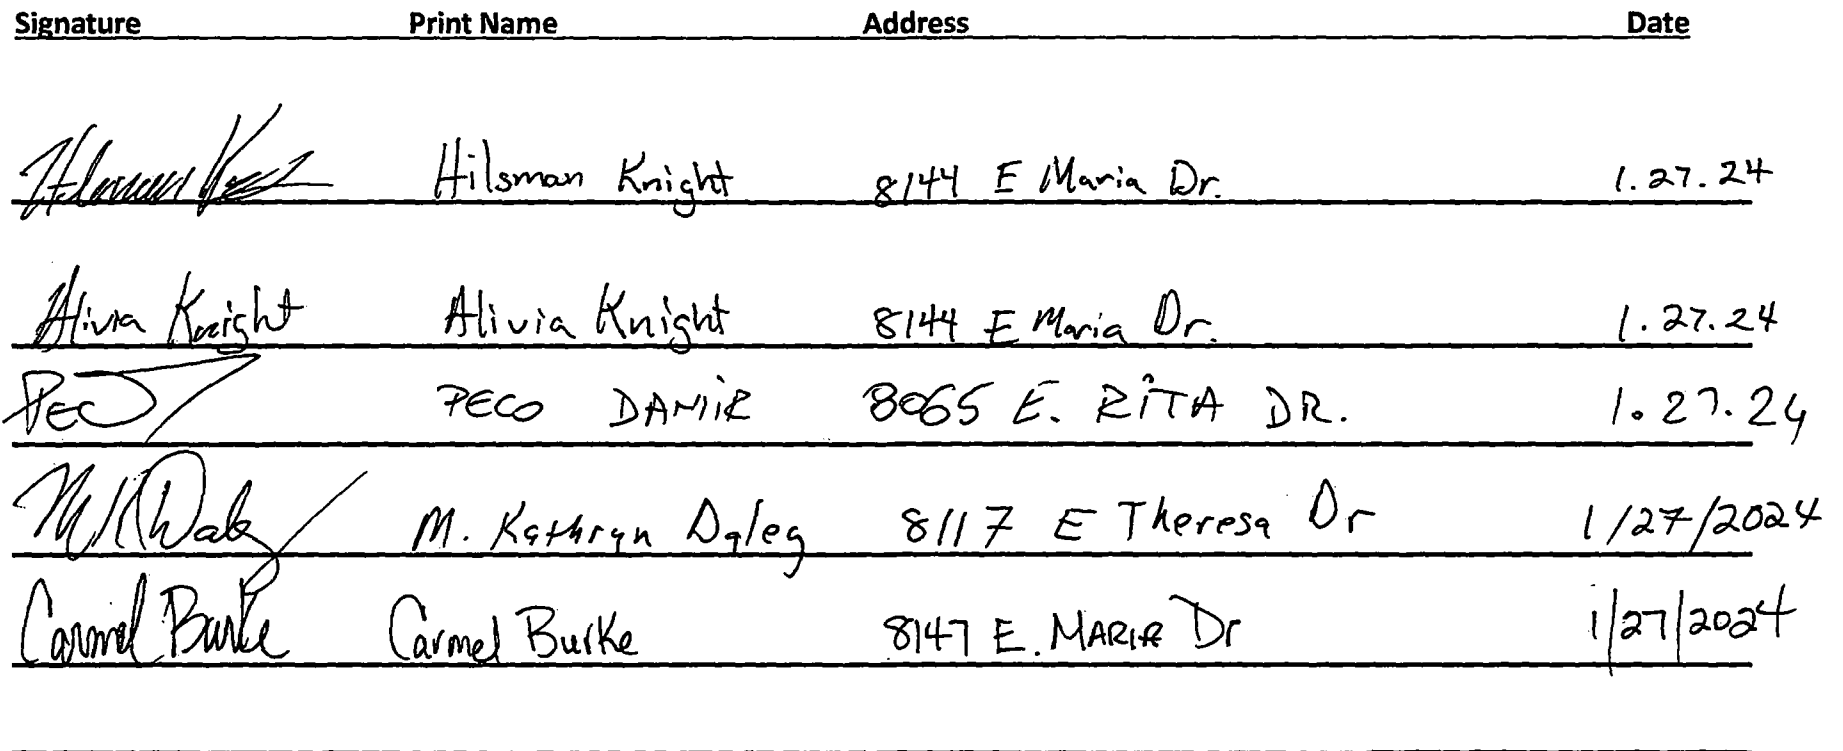 Signature Print Name Address Date
Hilsman Knight Hilsman Knight 8144 E Maria Dr. 1.27.24
Alivia Knight Alivia Knight 8144 E Maria Dr. 1.27.24
PECO PECO DAMIR 8065 E. RITA DR. 1.27.24
MKDaley M. Kathryn Daley 8117 E Theresa Dr 1/27/2024
Carmel Burke Carmel Burke 8147 E. MARIA Dr 1/27/2024